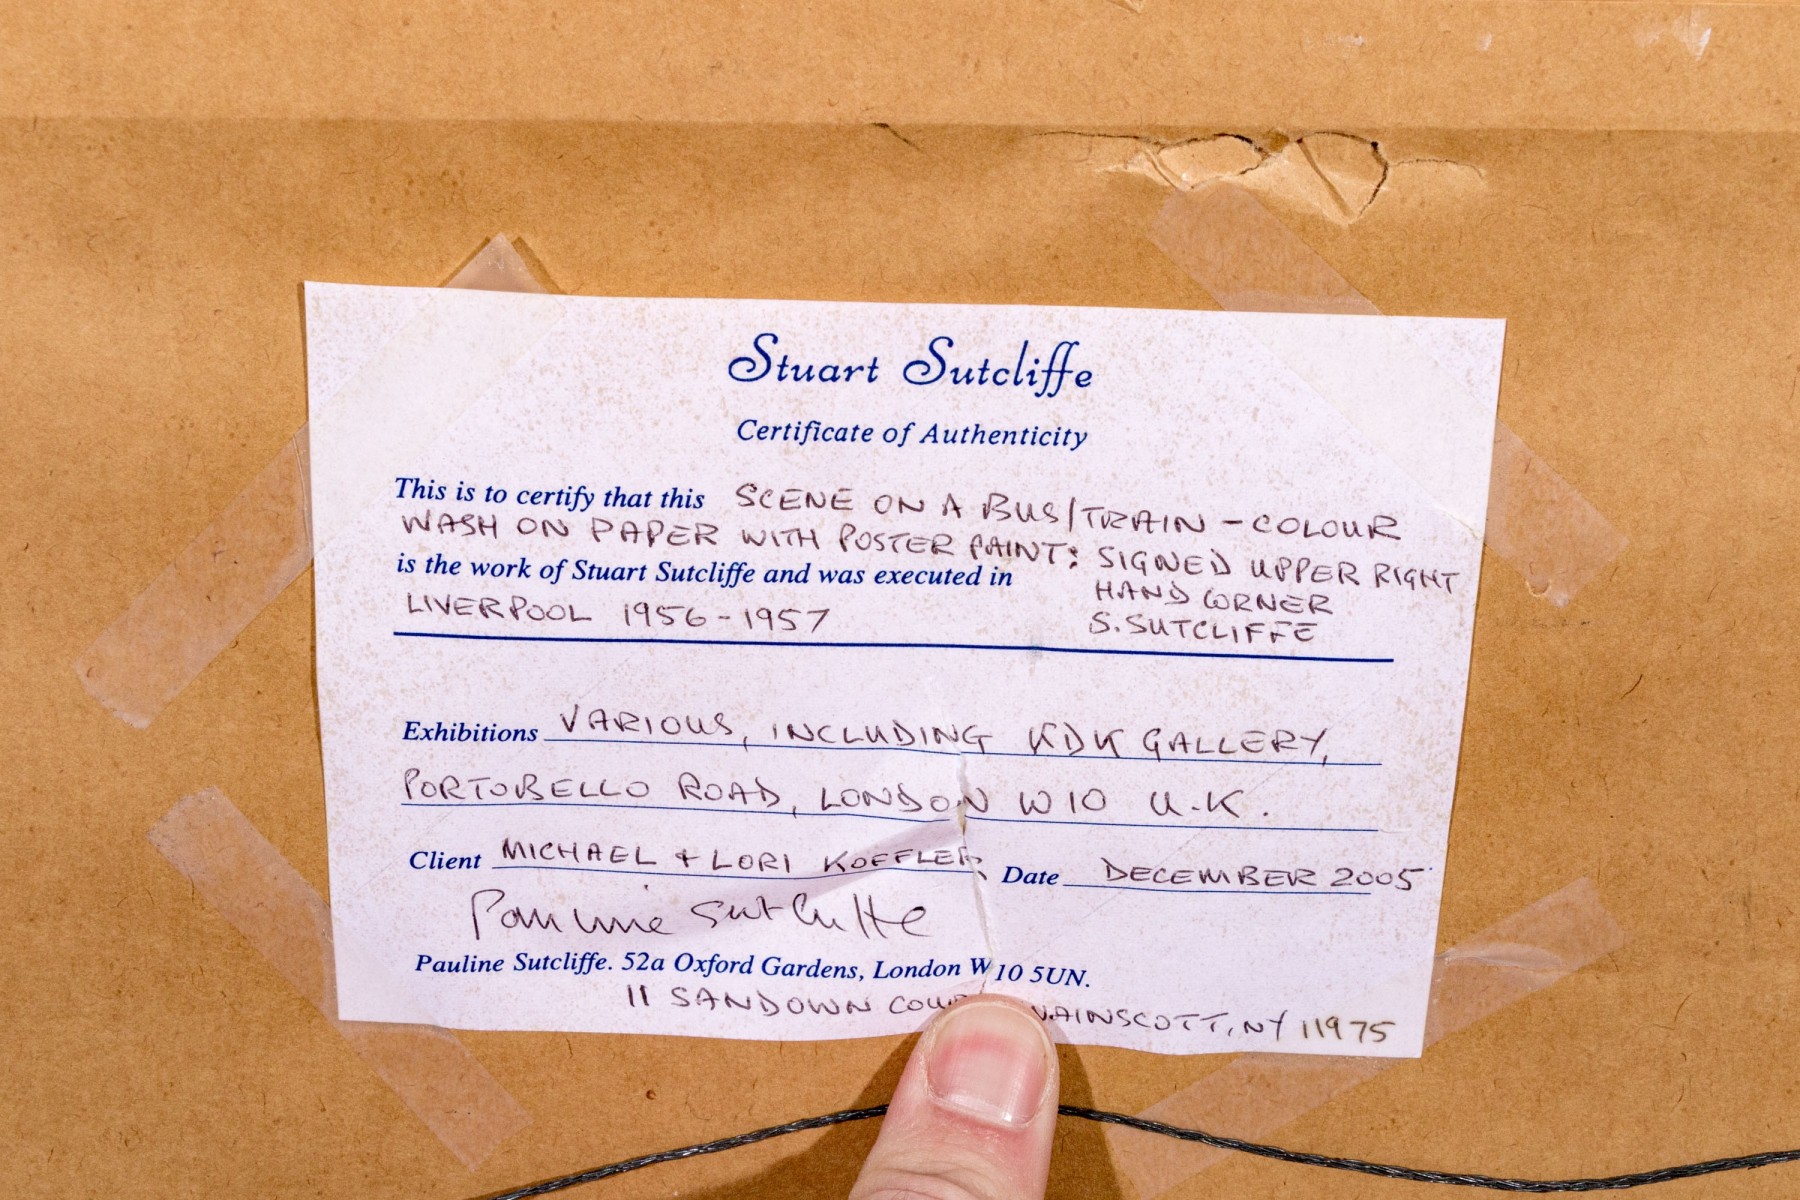 Stuart Sutcliffe
Certificate of Authenticity
This is to certify that this SCENE ON A BUS/TRAIN - COLOUR
WASH ON PAPER WITH POSTER PAINT: SIGNED UPPER RIGHT
is the work of Stuart Sutcliffe and was executed in HAND CORNER
LIVERPOOL 1956-1957 S. SUTCLIFFE
Exhibitions VARIOUS, INCLUDING KDK GALLERY,
PORTOBELLO ROAD, LONDON W10 U.K.
Client MICHAEL + LORI KOFFLER Date DECEMBER 2005
Pauline Sutcliffe
Pauline Sutcliffe. 52a Oxford Gardens, London W10 5UN.
11 SANDOWN WAINSCOTT, NY 11975